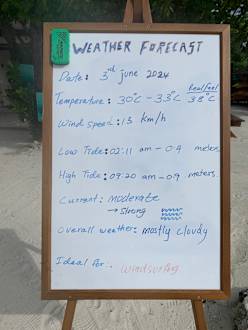 WEATHER FORECAST
Date: 3rd june 2024
Real feel
Temperature: 30°C - 33°C 38°C
Wind speed: 13 km/h
Low Tide: 02:11 am - 0.4 meters
High Tide: 09:20 am - 0.9 meters
Current: moderate
→ strong
Overall weather: mostly cloudy
Ideal for.. windsurfing